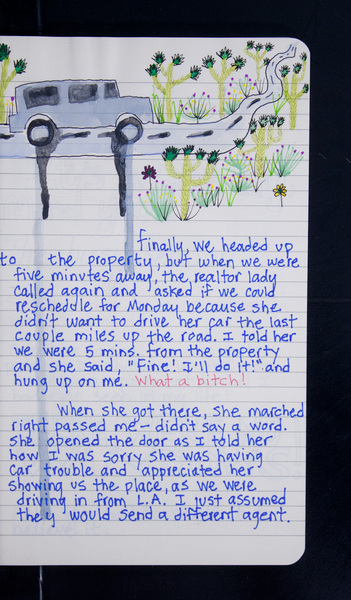 Finally, we headed up
to the property, but when we were
five minutes away, the realtor lady
called again and asked if we could
rescheddle for Monday because she
didn't want to drive her car the last
couple miles up the road. I told her
we were 5 mins. from the property
and she said, "Fine! I'll do it!" and
hung up on me. What a bitch!
When she got there, she marched
right passed me - didn't say a word.
She opened the door as I told her
how I was sorry she was having
car trouble and appreciated her
showing us the place, as we were
driving in from L.A. I just assumed
they would send a different agent.